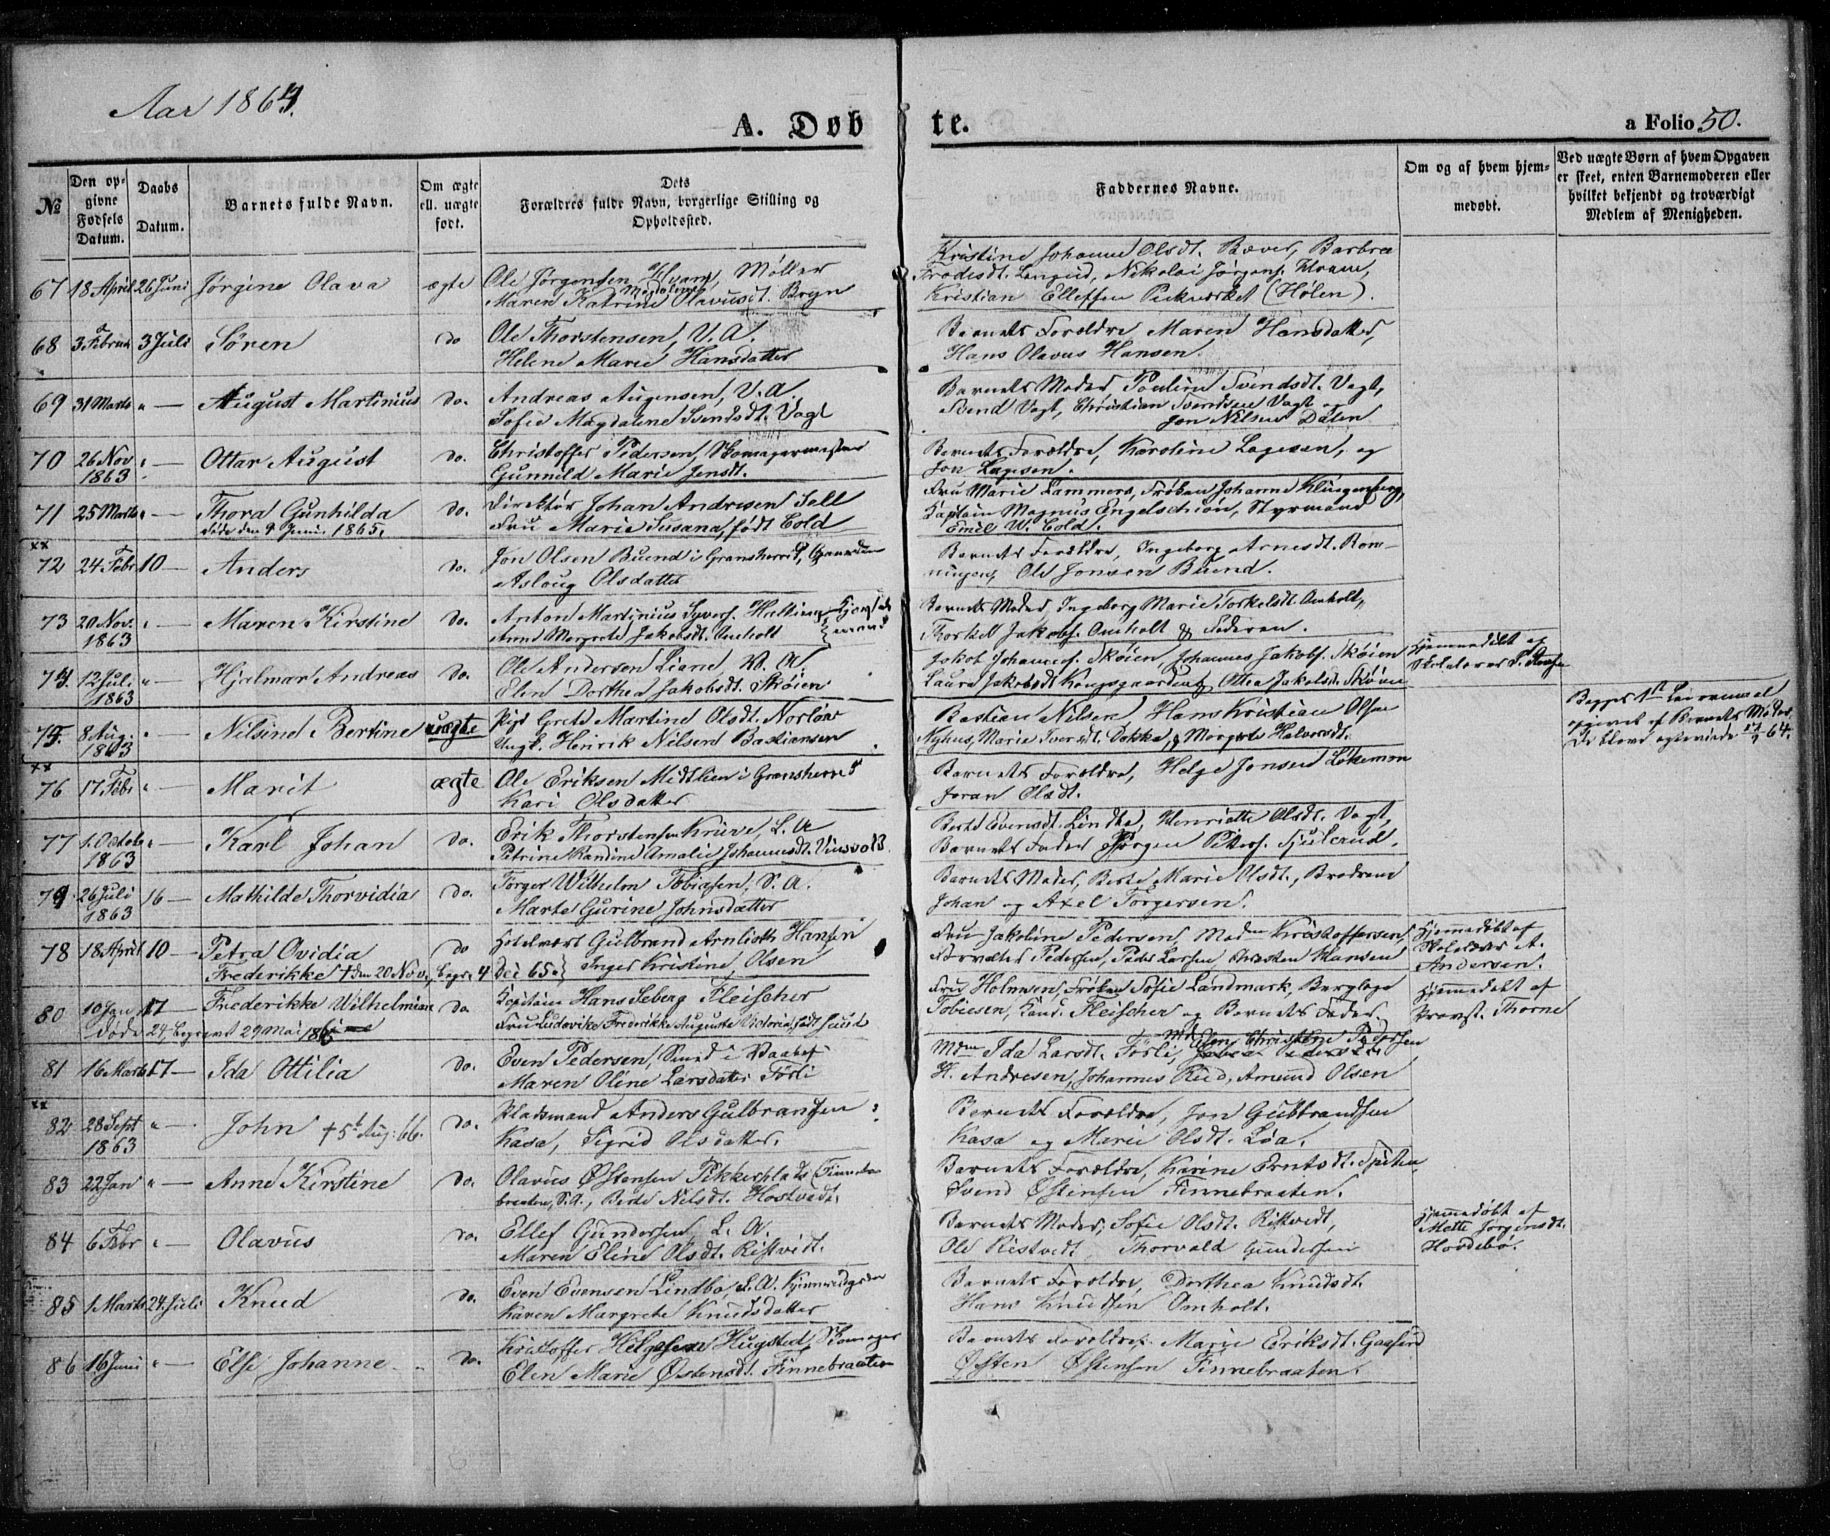 Aar 1864.
A. Døbte.
a Folio 50.
№
Den opgivne Fødsels Datum.
Daabs Datum.
Barnets fulde Navn.
Om ægte ell. uægte født.
Dets Forældres fulde Navn, borgerlige Stilling og Opholdssted.
Faddernes Navne.
Om og af hvem hjemmedøbt.
Ved uægte Børn af hvem Opgaven er skeet, enten Barnemoderen eller hvilket bekjendt og troværdigt Medlem af Menigheden.
67 18 April 26 Juni Jørgine Olava ægte Ole Jørgensen Hvam, Møller
Maren Katrine Magdalene Olavusdt. Bryn
Kristine Johanne Olsdt. Bæver, Barbra
Nikolai Jørgens. Hvam,
Kristian Ellefsen (Hølen).
68 3 Februar 3 Juli Søren do Ole Thorstensen, U.A.
Helene Marie Hansdatter
Barnets Forældre Maren Hansdatter,
Hans Olavus Hansen.
69 31 Marts " — August Martinius do. Andreas Augensen, U.A.
Sofie Magdalene Svendsdt. Vagt
Barnets Moder, Poulina Svendsdt. Vagt,
Svend Vagt, Christian Svendsen Vagt og
Jon Nilsen Dalen
70 26 Nov. 1863 " — Ottar August do. Christoffer Pedersen, Skomagermester
Gunnild Marie Jensdt.
Barnets Forældre, Karoline Lagesen, og
Jon Lagesen.
71 25 Marts " — Thora Gunhilda do. Direktør Johan Andresen Sell
døde den 9 Juni 1865. Fru Marie Susana, født Cold
Fru Marie Lammers, Frøken Johanne Klingenberg,
Kaptain Magnus Engelschiøn, Styrmand
Emil W. Cold.
xx
72 24 Febr 10 — Anders do. Jon Olsen Buend i Gransherred, Gaardm.
Aslaug Olsdatter
Barnets Forældre, Ingeborg Arnesdt. Rom-
ningen, Ole Jonsen Buend.
73 20 Nov. 1863 " — Maren Kirstine do. Anton Martinius Syvers.
Anne Margrete Jakobsdt. Omholt
Barnets Moder, Ingeborg Marie Torkelsdt. Omholt,
Thorkel Jakobs. Omholt & Faderen.
74. 12 Jul. 1863 " — Hjelmar Andreas do. Ole Andersen Liane, B.A.
Elen Dorthea Jakobsdt. Skøien
Jakob Johannes. Skøien, Johannes Jakobs. Skøien
Laura Jakobsdt Kongsgaarden & Othea Jakobsdt. Skøien
Hjemmedøbt af
Skolelærer
75. 8 Aug. 1863 " — Nilsine Bertine uægte Pige Grete Martine Olsdt. Norløw
Ungk. Henrik Nilsen Bastiansen
Bastian Nilsen, Hans Kristian Olsen
Nyhus, Marie Iversdt. Dokka, & Margrete Halvorsdt.
Begges 1st Leiermaal
opgivet af Barnets Moder.
De bleve ægteviede 64.
xx
76 17 Febr " — Marit ægte Ole Eriksen Midtlien i Gransherred
Kari Olsdatter
Barnets Forældre, Helge Jonsen Løkemoen
Joran Olsdt.
77 1. Octobr 1863 " — Karl Johan do. Erik Thorstensen Kruve, L.A
Petrine Randine Amalie Johannesdt. Vinsvold.
Berte Evensdt. Lindbo, Henriette Olsdt. Vagt,
Barnets Fader Jørgen Peters. Fjulerud.
79 26 Juli 1863 16 — Mathilde Thorvidia do. Torger Wilhelm Tobiasen, S.A.
Marte Gurine Johnsdatter
Barnets Moder, Berte Marie Olsdt., Brødrene
Johan og Axel Torgersen.
78 18 April 10 — Petra Ovidia do Gulbrand Arnlioth Hansen
Frederikke † den 20 Nov., begr. 4 Dec 65. Inger Kristine Olsen
Fru Jakobine Pedersen, Mdme Kristoffersen,
Pedersen, Peder Larsen, Karsten Hansen
Hjemmedøbt af
Skolelærer A.
Andersen.
80 10 Jan 17 — Frederikke Wilhelmine do Kapitain Hans Seberg Fleischer
Døde 24, begravet 29 Mai 186 Fru Ludovike Frederikke Auguste Victoria, født Juul
Fru Holmsen, Frøken Sofie Landmark, Berglage
Tobiesen, Kand. Fleischer og Barnets Fader.
Hjemmedøbt af
Provst. Thorne
81 16 Marts 17 — Ida Ottilia do. Even Pedersen, Smed i Vaabenf.
Maren Oline Larsdatter Førli
Mdme Ida Larsdt. Førli, Mdme Elen Christine Pedersen
H. Andresen, Johannes Rud, Amund Olsen
xx
82 28 Sept 1863 " — John † 5t Aug: 66. do. Pladsmand Anders Gulbrandsen
Kasa, Sigrid Olsdatter.
Barnets Forældre, Jon Gulbrandsen
Kasa og Marie Olsdt. Løa.
83 22 Jan " — Anne Kirstine do. Olavus Østensen Pekkerplads (Finne-
braaten, S.A., Berte Nilsdt. Hostvedt.
Barnets Forældre, Karine
Svend Østensen Finnebraaten.
84 6 Febr " — Olavus do. Ellef Gundersen, L.A.
Maren Eline Olsdt. Ristvedt.
Barnets Moder, Sofie Olsdt. Ristvedt,
Ole Ristvedt Thorvald Gundersen
Hjemmedøbt af
Mette Jørgensdt.
Hovdebø.
85 1 Marts 24. Juli Knud do. Even Evensen Lindbo, L.A.
Karen Margrete Knudsdatter
Barnets Forældre, Dorthea Knudsdt.
Hans Knudsen Omholt.
86 16 Juni " — Else Johanne do. Kristoffer Helgesen Hugsted, Skomager
Elen Marie Østensdt. Finnebraaten
Barnets Forældre, Marie Eriksdt.
Østen Østensen Finnebraaten.